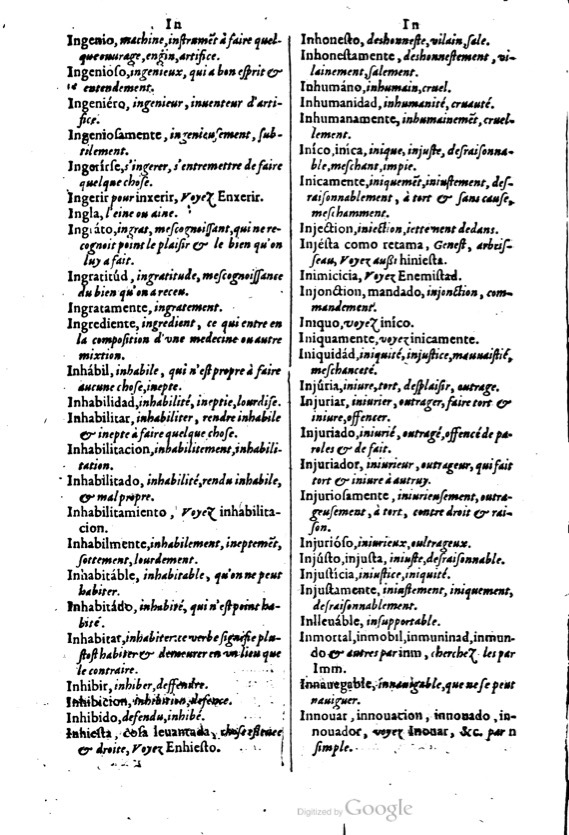 In
Ingenio, machine, instrumẽt à faire quel-
que ouurage, engin, artifice.
Ingenioso, ingenieux, qui a bon esprit &
entendement.
Ingeniéro, ingenieur, inuenteur d'arti-
fice.
Ingeniosamente, ingenieusement, sub-
tilement.
Ingerirse, s'ingerer, s'entremettre de faire
quelque chose.
Ingerir pour inxerir, Voyez Enxerir.
Ingla, l'eine ou aine.
Ingráto, ingrat, mescognoissant, qui ne re-
cognoit point le plaisir & le bien qu'on
luy a fait.
Ingratitúd, ingratitude, mescognoissance
du bien qu'on a receu.
Ingratamente, ingratement.
Ingrediente, ingredient, ce qui entre en
la composition d'vne medecine ou autre
mixtion.
Inhábil, inhabile, qui n'est propre à faire
aucune chose, inepte.
Inhabilidad, inhabilité, ineptie, lourdise.
Inhabilitar, inhabiliter, rendre inhabile
& inepte à faire quelque chose.
Inhabilitacion, inhabilitement, inhabili-
tation.
Inhabilitado, inhabilité, rendu inhabile,
& mal propre.
Inhabilitamiento, Voyez inhabilita-
cion.
Inhabilmente, inhabilement, ineptemẽt,
sottement, lourdement.
Inhabitáble, inhabitable, qu'on ne peut
habiter.
Inhabitádo, inhabité, qui n'est point ha-
bité.
Inhabitar, inhabiter: ce verbe signifie plu-
stost habiter & demeurer en vn lieu que
le contraire.
Inhibir, inhiber, deffendre.
Inhibicion, inhibition, defence.
Inhibido, defendu, inhibé.
Inhiesta, cosa leuantada, chose
& droite, Voyez Enhiesto.
In
Inhonesto, deshonneste, vilain, sale.
Inhonestamente, deshonnestement, vi-
lainement, salement.
Inhumáno, inhumain, cruel.
Inhumanidad, inhumanité, cruauté.
Inhumanamente, inhumainemẽt, cruel-
lement.
Iníco, inica, inique, injuste, desraisonna-
ble, meschant, impie.
Inicamente, iniquemẽt, iniustement, des-
raisonnablement, à tort & sans cause,
meschamment.
Injection, iniection, iettement dedans.
Injésta como retama, Genest, arbris-
seau, Voyez aussi hiniesta.
Inimicicia, Voyez Enemistad.
Injonction, mandado, injonction, com-
mandement.
Iniquo, voyez iníco.
Iniquamente, voyez inicamente.
Iniquidád, iniquité, injustice, mauuaistié,
meschanceté.
Injúria, iniure, tort, desplaisir, outrage.
Injuriar, iniurier, outrager, faire tort &
iniure, offencer.
Injuriado, iniurié, outragé, offencé de pa-
roles & de fait.
Injuriador, iniurieur, outrageur, qui fait
tort & iniure à autruy.
Injuriosamente, iniurieusement, outra-
geusement, à tort, contre droit & rai-
son.
Injurióso, iniurieux, oultrageux.
Injústo, injusta, iniuste, desraisonnable.
Injustícia, iniustice, iniquité.
Injustamente, iniustement, iniquement,
desraisonnablement.
Inlleuáble, insupportable.
Inmortal, inmobil, inmuninad, inmun-
do & autres par inm, cherchez les par
Imm.
Innauegable, innauigable, que ne se peut
nauiguer.
Innouar, innouacion, innouado, in-
nouador, voyez Inouar, &c. par n
simple.
Digitized by Google